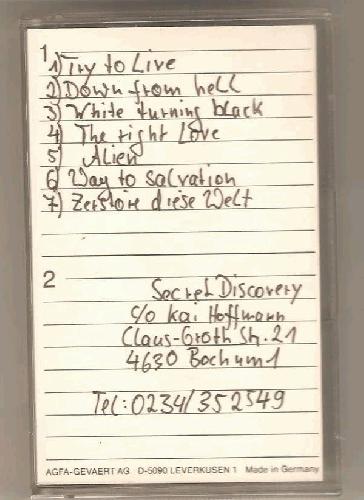 1
1) Try to Live
2) Down from hell
3) White turning black
4) The right Love
5) Alien
6) Way to salvation
7) Zerstöre diese Welt
2
Secret Discovery
c/o Kai Hoffmann
Claus-Groth Str. 21
4630 Bochum 1
Tel: 0234/352549
AGFA-GEVAERT AG D-5090 LEVERKUSEN 1 Made in Germany